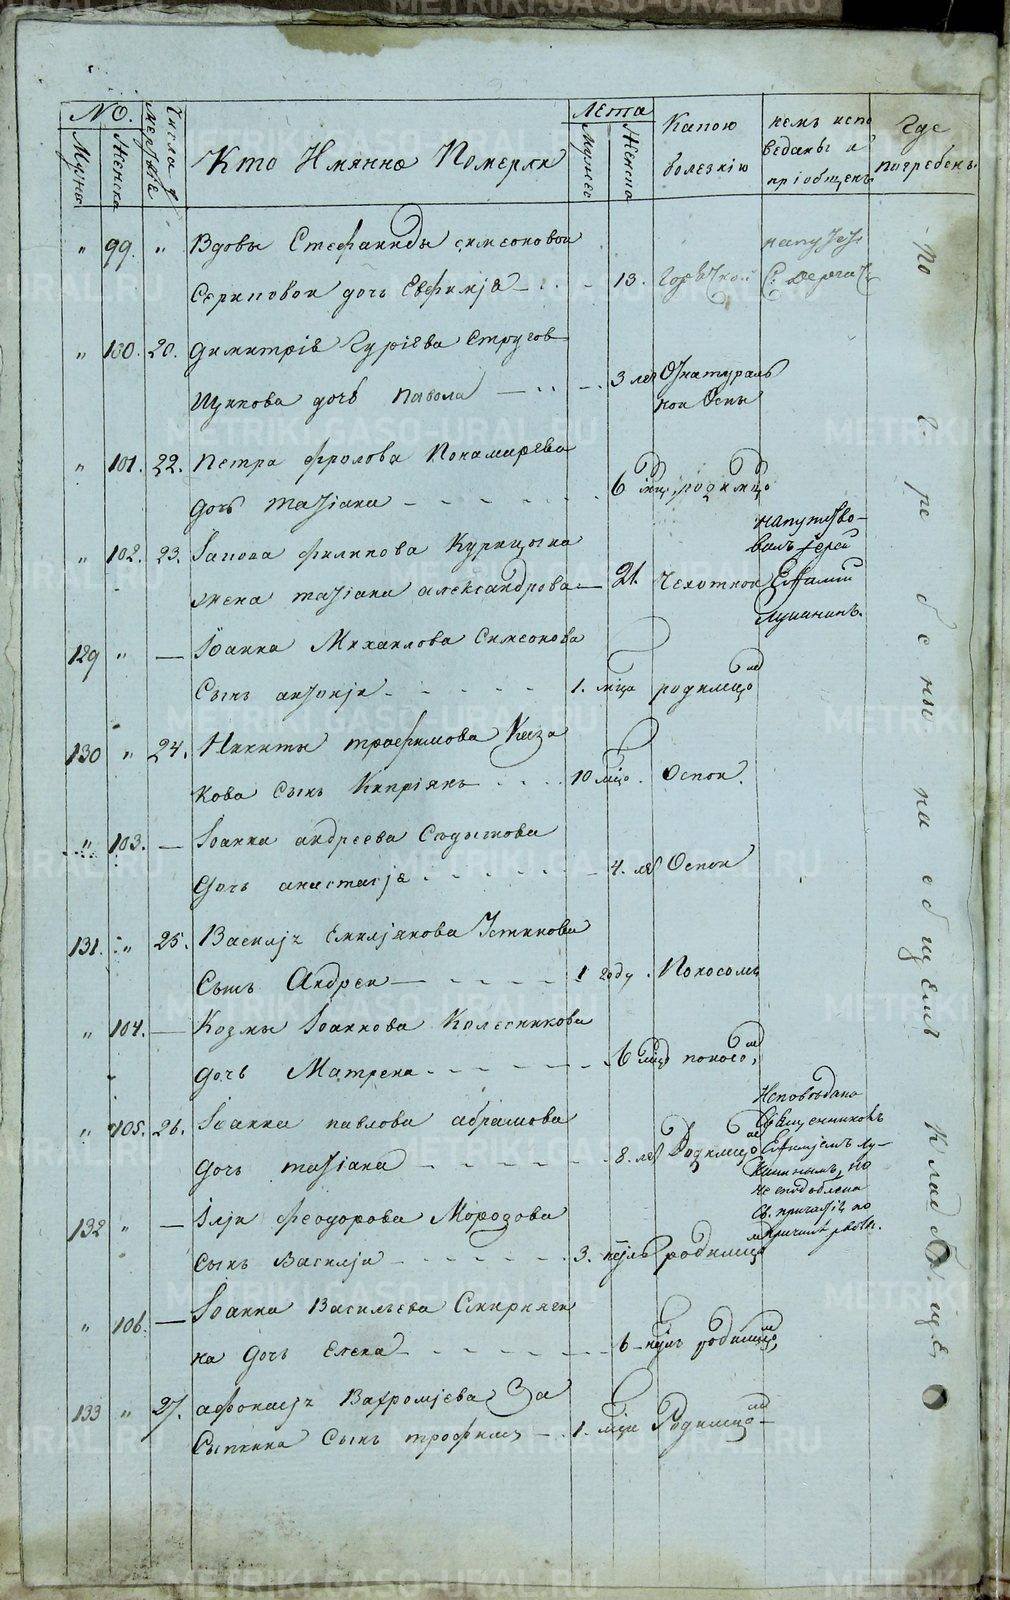 METRIKI.GASO-URAL.RU
№.
Мужска
Женска
Числа
Кто Имянно Померли
Лета
Мужес
Женска
Какою болезнію
кемъ испо
веданы и
пріобщенъ
Где
погребенъ
" 99. " Вдовы Стефаниды симеоновой
дочь Евфимія 13.
" 100. 20. Димитрія Гуріева Стругов
щикова дочь Павола 3 лет Отнатураль
ной Оспы
" 101. 22. Петра фролова Понамарева
дочь татіана 6 мцъ родимцо
" 102. 23. Іакова филипова Курицына
жена татіана александрова 21. Чехотной
напутство-
валъ Іерей
Евфимій
Лукининъ.
129 " — Іоанна Михаилова Симеонова
Сынъ антоній 1. мца родимцо
130 " 24. Никиты трофимова Каза
кова Сынъ Кипріянъ 10 мцо. Оспои.
" 103. — Іоанна андреева
дочь анастасія 4. лет Оспои
131. " 25. Василія Емиліянова Устинова
Сынъ Андреи 1 году. Поносомъ
" 104. — Козмы Іоаннова Колесникова
дочь Матрена 6 мцо поносо
" 105. 26. Іоанна павлова абрамова
дочь татіана 8. лет Родимцо
Исповѣдана
Священникомъ
Евфиміемъ Лу-
кинымъ, но
не сподоблена
Св. причастія по
причине рвоты.
132 " — Іліи феодорова Морозова
Сынъ Василіи 3. нѣдль родимцо
" 106. — Іоанна Васильева Смирняги
на дочь Елена 6 нѣдль родимцо
133 " 27. афонасія Вахромѣева За
сыпкина Сынъ трофимъ 1. мца Родимцо
По гребены на общемъ Кладбище